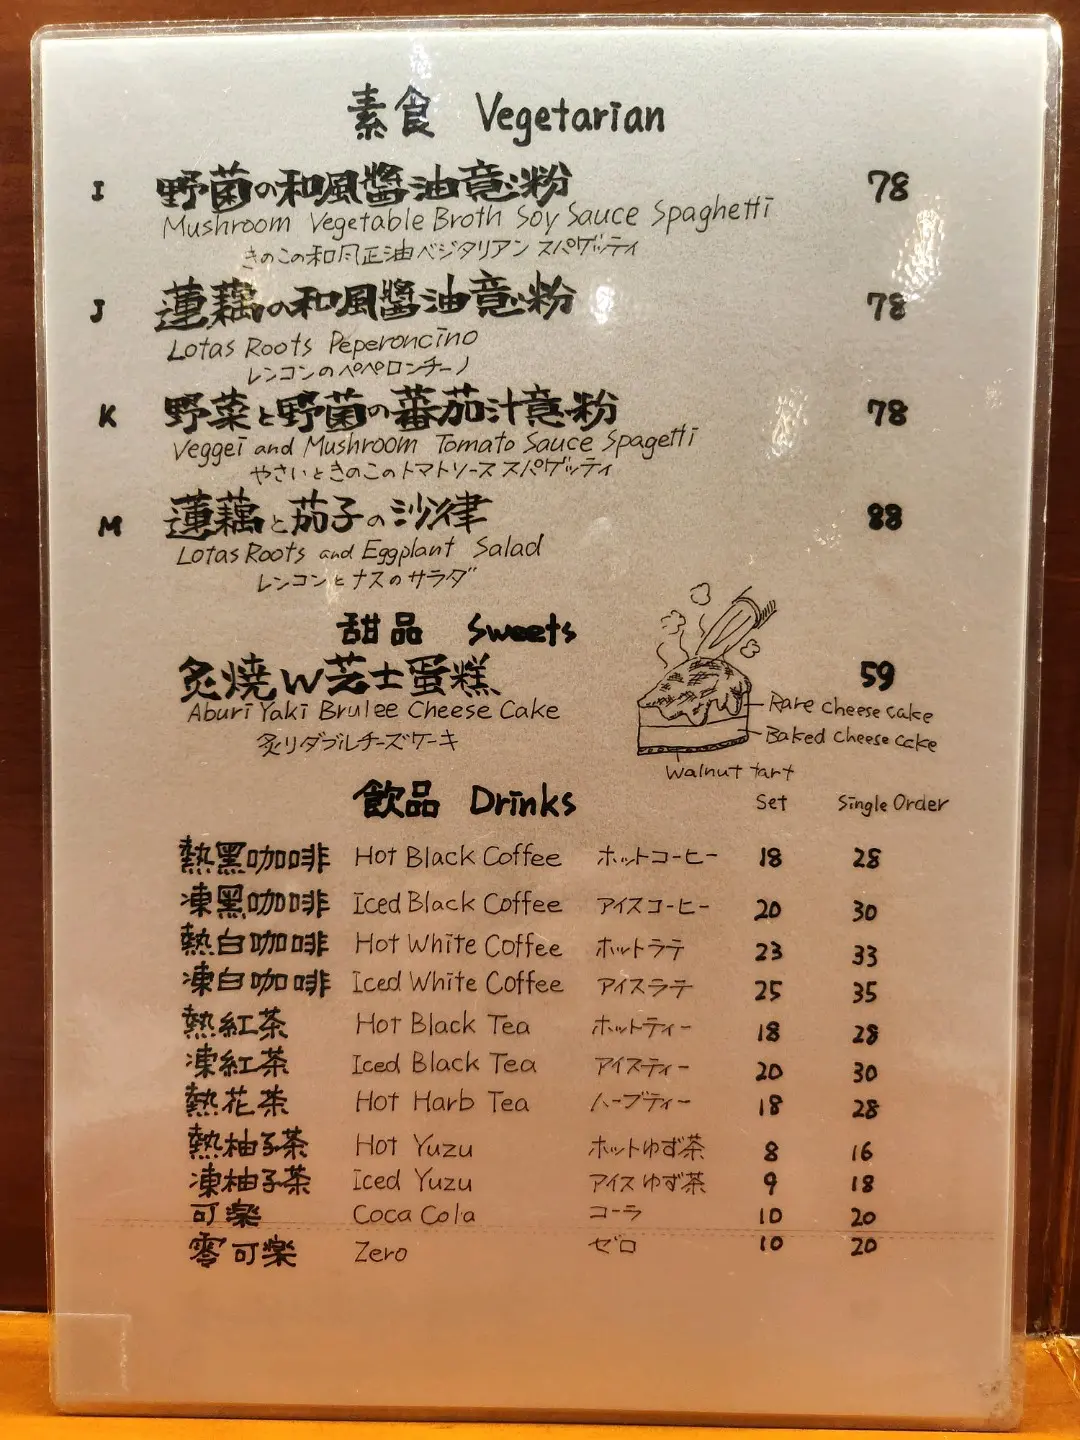 素食 Vegetarian
I 野菌の和風醬油意粉 78
Mushroom Vegetable Broth Soy Sauce Spaghetti
きのこの和風正油ベジタリアン スパゲッティ
J 蓮藕の和風醬油意粉 78
Lotas Roots Peperoncino
レンコンのペペロンチーノ
K 野菜と野菌の蕃茄汁意粉 78
Veggei and Mushroom Tomato Sauce Spagetti
やさいときのこのトマトソース スパゲッティ
M 蓮藕と茄子の沙律 88
Lotas Roots and Eggplant Salad
レンコンとナスのサラダ
甜品 Sweets
炙燒W芝士蛋糕 59
Aburi Yaki Brulee Cheese Cake
炙りダブルチーズケーキ
Rare cheese cake
Baked cheese cake
Walnut tart
飲品 Drinks Set Single Order
熱黑咖啡 Hot Black Coffee ホットコーヒー 18 28
凍黑咖啡 Iced Black Coffee アイスコーヒー 20 30
熱白咖啡 Hot White Coffee ホットラテ 23 33
凍白咖啡 Iced White Coffee アイスラテ 25 35
熱紅茶 Hot Black Tea ホットティー 18 28
凍紅茶 Iced Black Tea アイスティー 20 30
熱花茶 Hot Harb Tea ハーブティー 18 28
熱柚子茶 Hot Yuzu ホットゆず茶 8 16
凍柚子茶 Iced Yuzu アイスゆず茶 9 18
可樂 Coca Cola コーラ 10 20
零可樂 Zero ゼロ 10 20